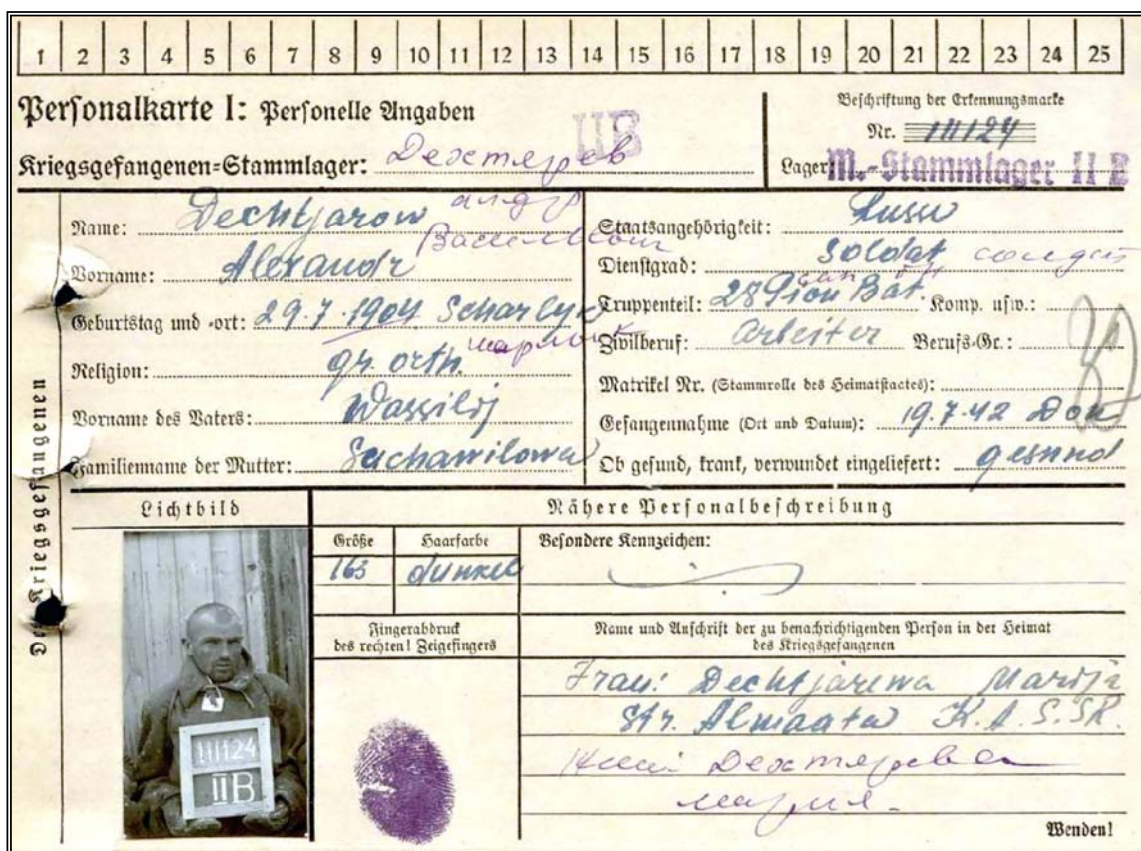 1 2 3 4 5 6 7 8 9 10 11 12 13 14 15 16 17 18 19 20 21 22 23 24 25
Personalkarte I: Personelle Angaben
IIB
Kriegsgefangenen-Stammlager: Дехтерев
Beschriftung der Erkennungsmarke
Nr. 111124
Lager: M.-Stammlager II B
Name: Dechtjarow
Vorname: Alexandr
Geburtstag und -ort: 29.7.1904 Scharlyk
шарлык
Religion: gr. orth.
Vorname des Vaters: Wassilij
Familienname der Mutter: Sachawilowa
Staatsangehörigkeit: Russe
Dienstgrad: Soldat солдат
Truppenteil: 28 Pion Bat. Komp. usw.:
Zivilberuf: Arbeiter Berufs-Gr.:
Matrikel Nr. (Stammrolle des Heimatstaates):
Gefangennahme (Ort und Datum): 19.7.42 Don
Ob gesund, krank, verwundet eingeliefert: gesund
Des Kriegsgefangenen
Lichtbild
111124
IIB
Nähere Personalbeschreibung
Größe Haarfarbe Besondere Kennzeichen:
163 dunkel
Fingerabdruck
des rechten! Zeigefingers
Name und Anschrift der zu benachrichtigenden Person in der Heimat
des Kriegsgefangenen
Frau: Dechtjarewa Marija
Str. Almaata K.A.S.SR.
Дехтерева
мария
Wenden!